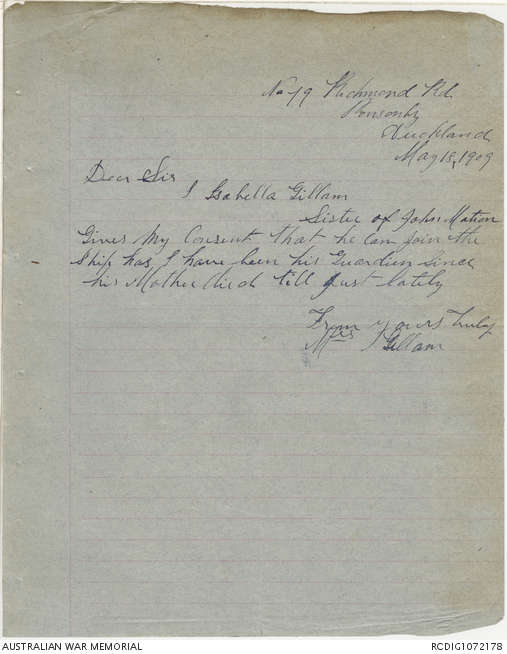 No 79 Richmond Rd
Ponsonby
Auckland
May 18, 1909
Dear Sir
I Isabella Gillam
Sister of John Matson
Gives My Consent that he can join the
Ship has I have been his Guardian since
his Mother died till just lately
From yours Truly
Mrs I Gillam
AUSTRALIAN WAR MEMORIAL
RCDIG1072178